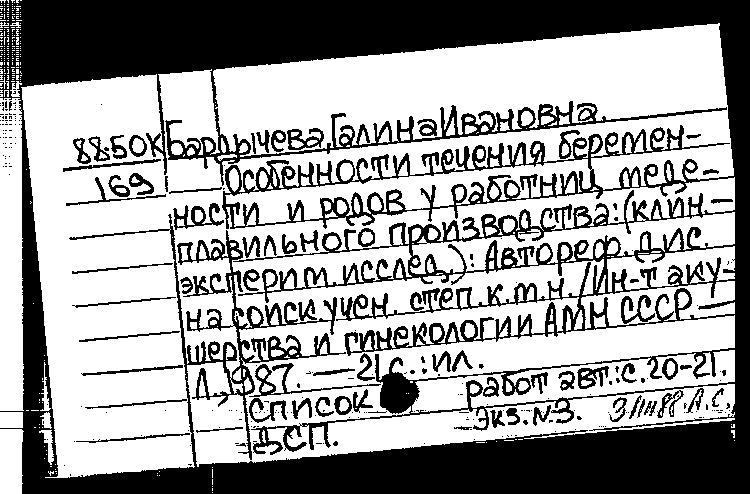 88-50К Бардычева, Галина Ивановна.
169 Особенности течения беремен-
ности и родов у работниц меде-
плавильного производства: (клин.-
эксперим. исслед.): Автореф. дис.
на соиск. учен. степ. к.м.н. / Ин-т аку-
шерства и гинекологии АМН СССР. —
Л., 1987. — 21 с. : ил.
Список работ авт.: с. 20-21.
ДСП. Экз. №3.